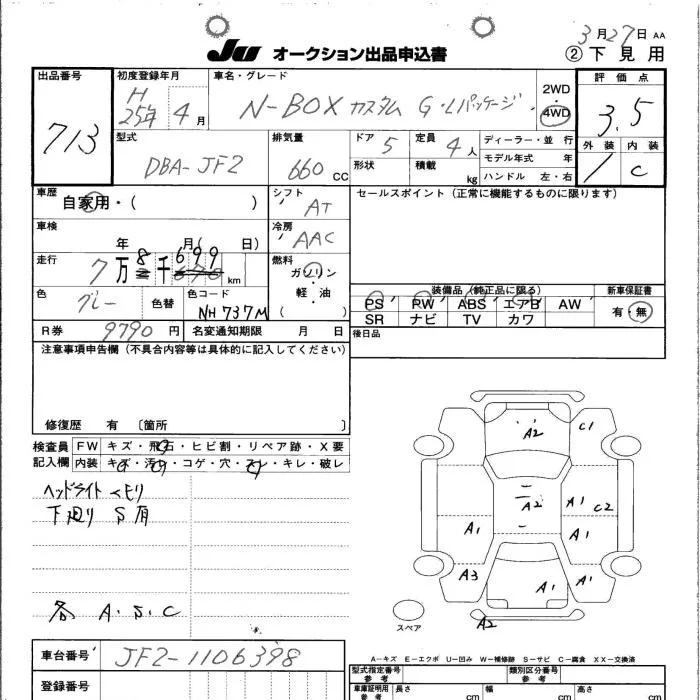 3月27日 AA
JU オークション出品申込書 ②下見用
出品番号 713
初度登録年月 H25年4月
車名・グレード N-BOX カスタム G・Lパッケージ
2WD
4WD
評価点 3.5
外装 内装
1 C
型式 DBA-JF2
排気量 660 CC
ドア 5
定員 4人
ディーラー・並行
モデル年式 年
形状
積載 kg
ハンドル 左・右
車歴 自家用・( )
シフト AT
セールスポイント(正常に機能するものに限ります)
車検 年 月( 日)
冷房 AAC
走行 7万8千699km
燃料 ガソリン・軽油
( )
装備品(純正品に限る) 新車保証書
PS PW ABS エアB AW 有・無
SR ナビ TV カワ
色 グレー 色替
色コード NH737M
R券 9790円
名変通知期限 月 日
後日品
注意事項申告欄(不具合内容等は具体的に記入してください)
修復歴 有 〔箇所 〕
検査員記入欄
FW キズ・飛石・ヒビ割・リペア跡・X要
内装 キズ・汚れ・コゲ・穴・スレ・キレ・破レ
ヘッドライト クモリ
下廻り S有
各 A.S.C
A2
C1
A2
A1
C2
A1
A1
A3
A1
A1
A2
スペア
A-キズ E-エクボ U-凹み W-補修跡 S-サビ C-腐食 XX-交換済
車台番号 JF2-1106398
登録番号
型式指定番号 参考
類別区分番号 参考
車庫証明用 参考
長さ cm 幅 cm 高さ cm